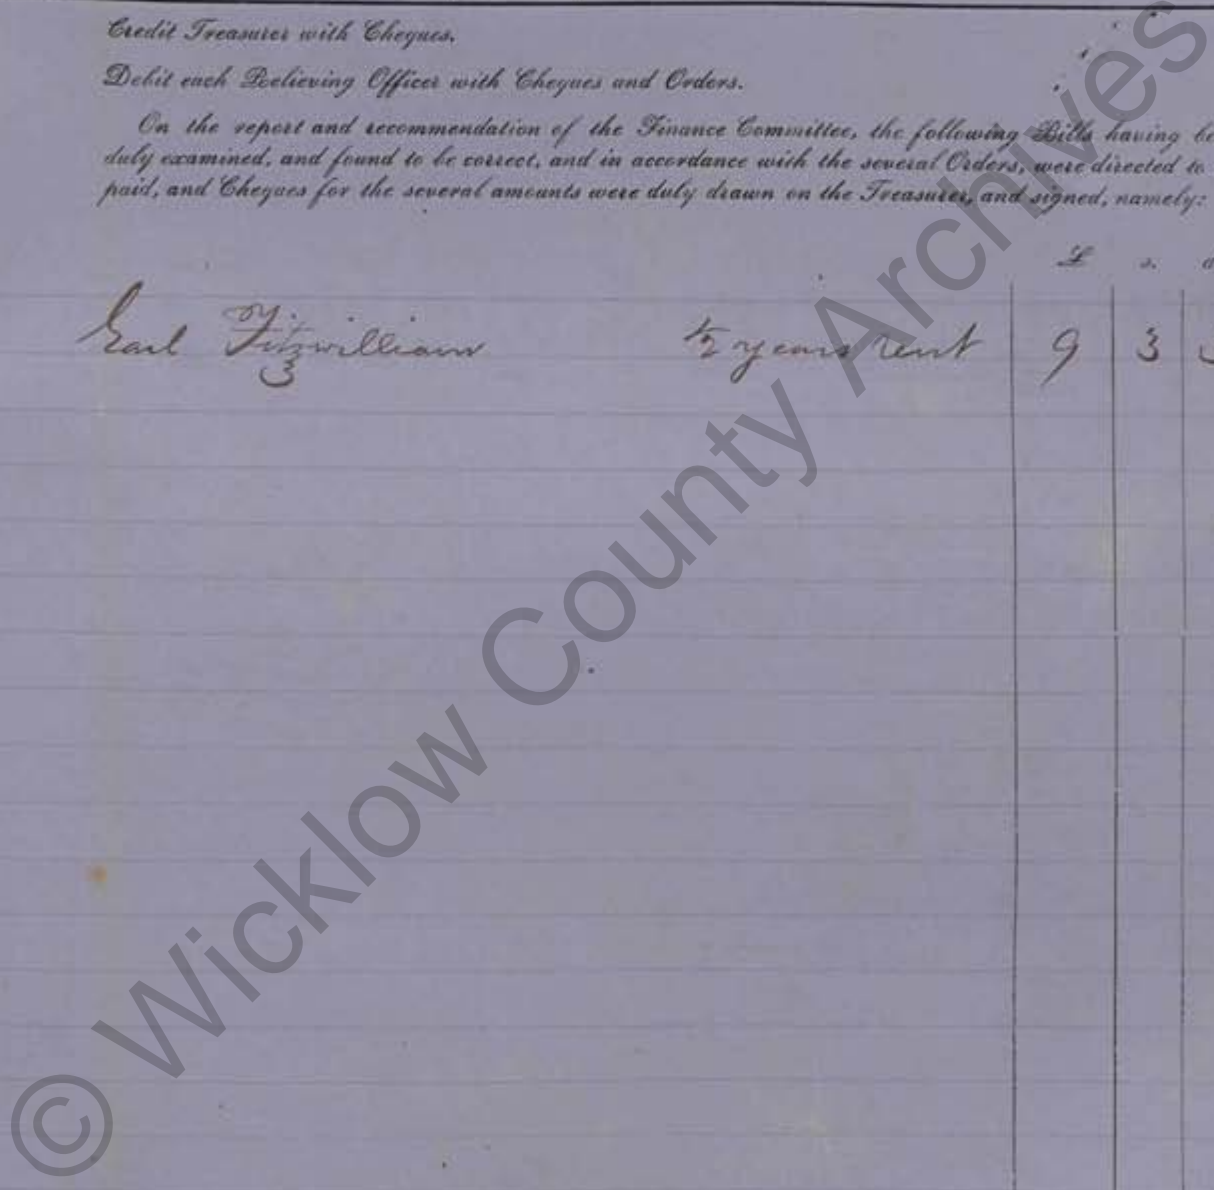 Credit Treasurer with Cheques.
Debit each Relieving Officer with Cheques and Orders.
On the report and recommendation of the Finance Committee, the following Bills having be
duly examined, and found to be correct, and in accordance with the several Orders, were directed to
paid, and Cheques for the several amounts were duly drawn on the Treasurer, and signed, namely:
£ s. d
Earl Fitzwilliam ½ years rent 9 3
© Wicklow County Archives